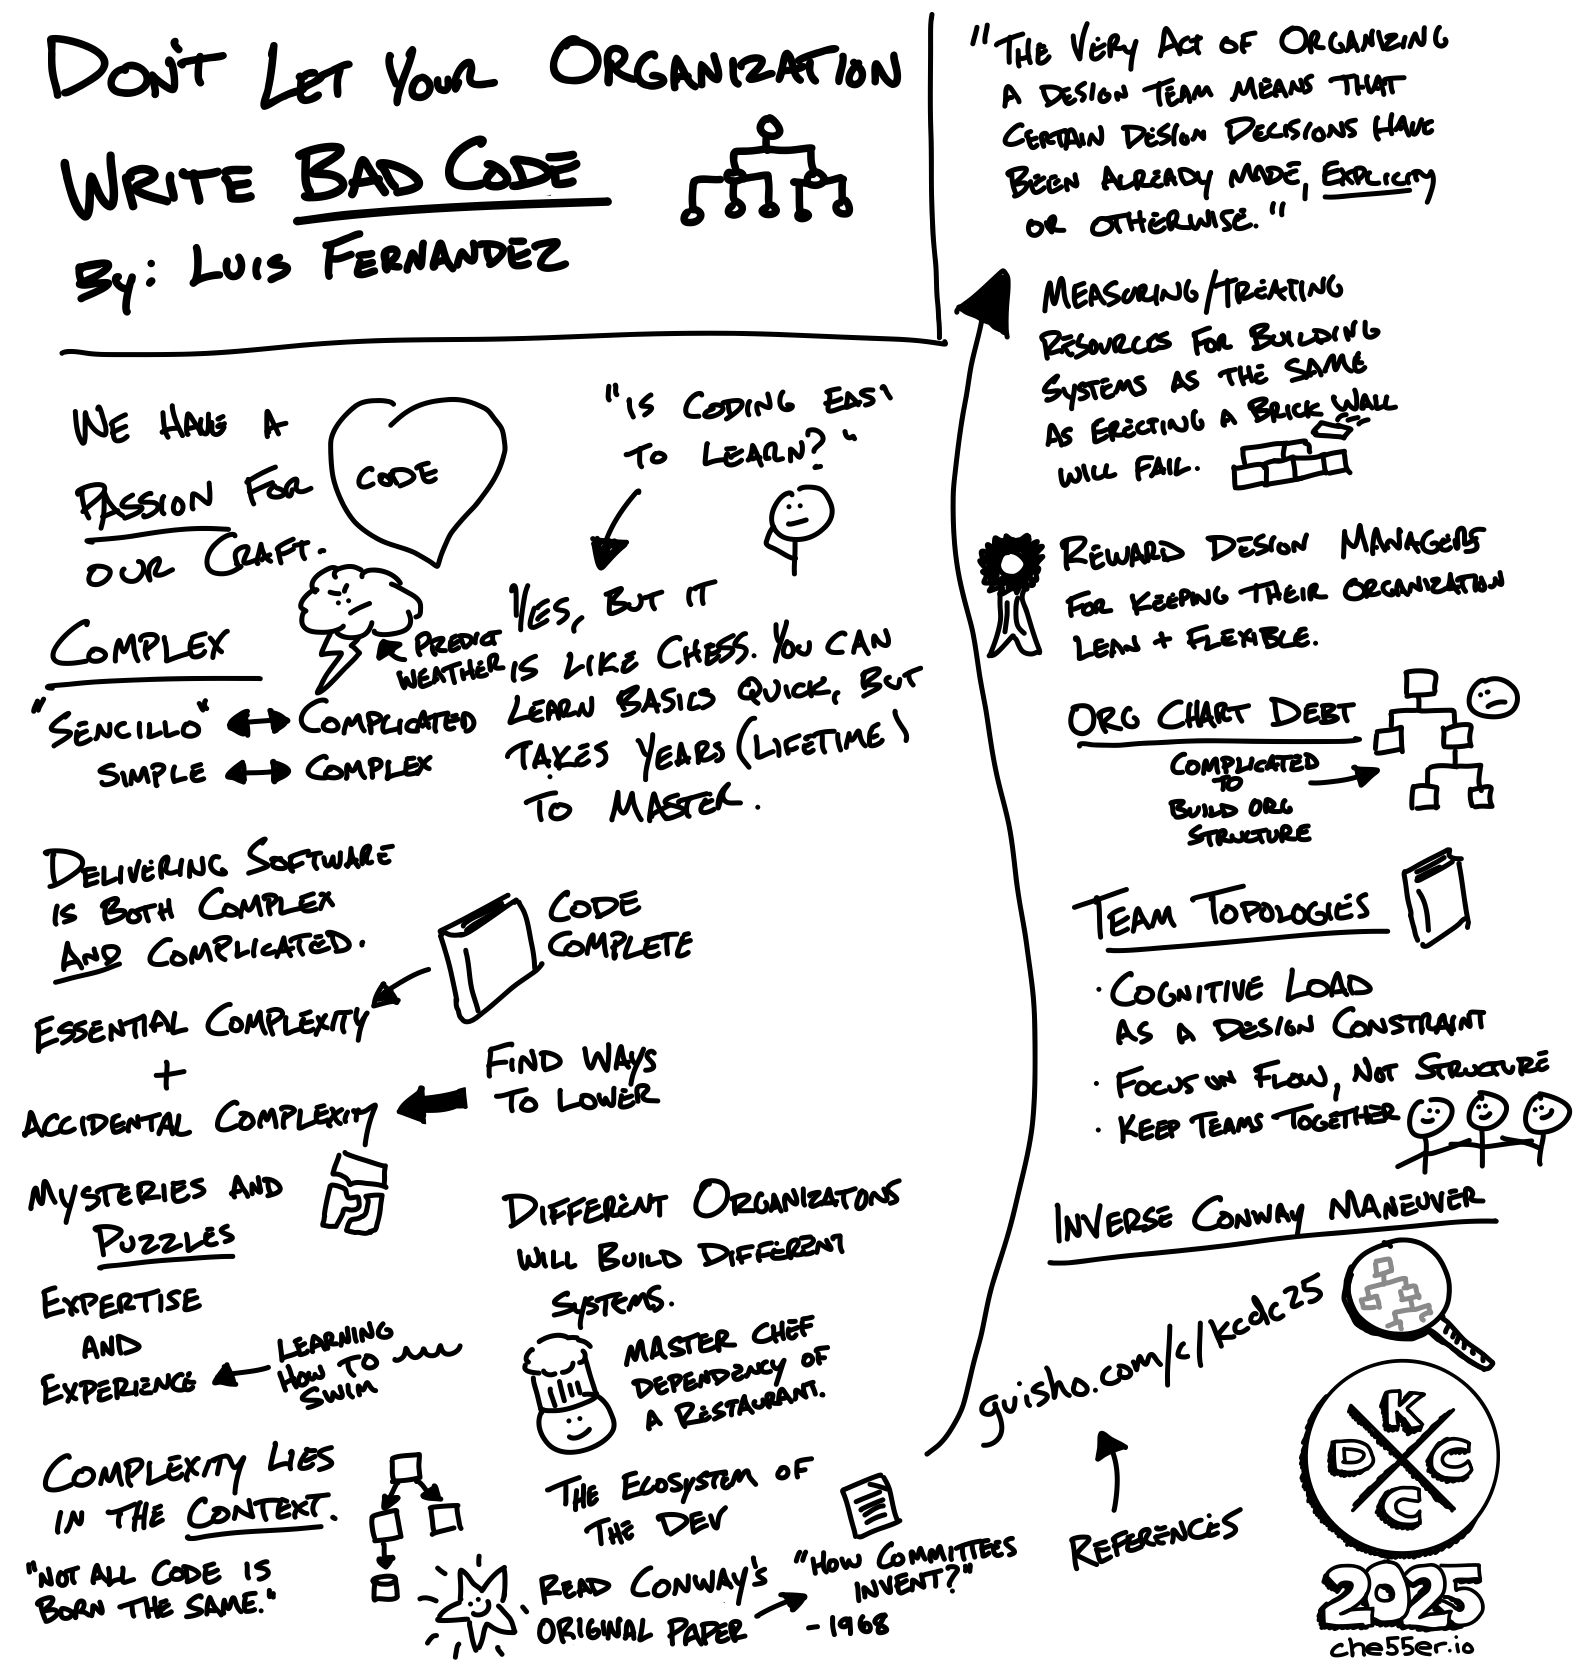 DON'T LET YOUR ORGANIZATION
WRITE BAD CODE
BY: LUIS FERNANDEZ
WE HAVE A
PASSION FOR
OUR CRAFT.
CODE
"IS CODING EASY
TO LEARN?"
YES, BUT IT
IS LIKE CHESS. YOU CAN
LEARN BASICS QUICK, BUT
TAKES YEARS (LIFETIME)
TO MASTER.
COMPLEX
PREDICT
WEATHER
"SENCILLO" COMPLICATED
SIMPLE COMPLEX
DELIVERING SOFTWARE
IS BOTH COMPLEX
AND COMPLICATED.
CODE
COMPLETE
ESSENTIAL COMPLEXITY
+
ACCIDENTAL COMPLEXITY
FIND WAYS
TO LOWER
MYSTERIES AND
PUZZLES
EXPERTISE
AND
EXPERIENCE
LEARNING
HOW TO
SWIM
COMPLEXITY LIES
IN THE CONTEXT.
"NOT ALL CODE IS
BORN THE SAME."
DIFFERENT ORGANIZATONS
WILL BUILD DIFFERENT
SYSTEMS.
MASTER CHEF
DEPENDENCY OF
A RESTAURANT.
THE ECOSYSTEM OF
THE DEV
READ CONWAY'S
ORIGINAL PAPER
"HOW COMMITTEES
INVENT?"
- 1968
"THE VERY ACT OF ORGANIZING
A DESIGN TEAM MEANS THAT
CERTAIN DESIGN DECISIONS HAVE
BEEN ALREADY MADE, EXPLICITY
OR OTHERWISE."
MEASURING/TREATING
RESOURCES FOR BUILDING
SYSTEMS AS THE SAME
AS ERECTING A BRICK WALL
WILL FAIL.
REWARD DESIGN MANAGERS
FOR KEEPING THEIR ORGANIZATION
LEAN + FLEXIBLE.
ORG CHART DEBT
COMPLICATED
TO
BUILD ORG
STRUCTURE
TEAM TOPOLOGIES
· COGNITIVE LOAD
AS A DESIGN CONSTRAINT
· FOCUS ON FLOW, NOT STRUCTURE
· KEEP TEAMS TOGETHER
INVERSE CONWAY MANEUVER
guisho.com/c/kcdc25
REFERENCES
K
D C
C
2025
che55er.io